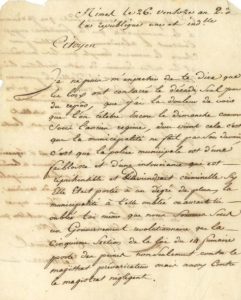 Nimes le 26 ventose an 2 d
la république une et ind.ble
Citoyen
Je ne puis m'empecher de te dire que
les loix ont consacré le décadi seul jour
de repos, que j'ai la douleur de voir
que l'on célèbre encore le dimanche comme
sous l'ancien regime, d'ou vient cela c'est
que la municipalité ne fait pas son devoir
c'est que la police municipale est d'une
faiblesse et d'une insouciance qui est
reprehensible et deviendroit criminelle si
elle etoit portée a un dégré de plus, la
municipalité a t'elle oublié
que nous sommes sous
un Gouvernement revolutionnaire que la
Section de la loi du 14 frimaire
porte des peines non seulement contre le
magistrat prevaricateur mais aussi contre
le magistrat negligent.